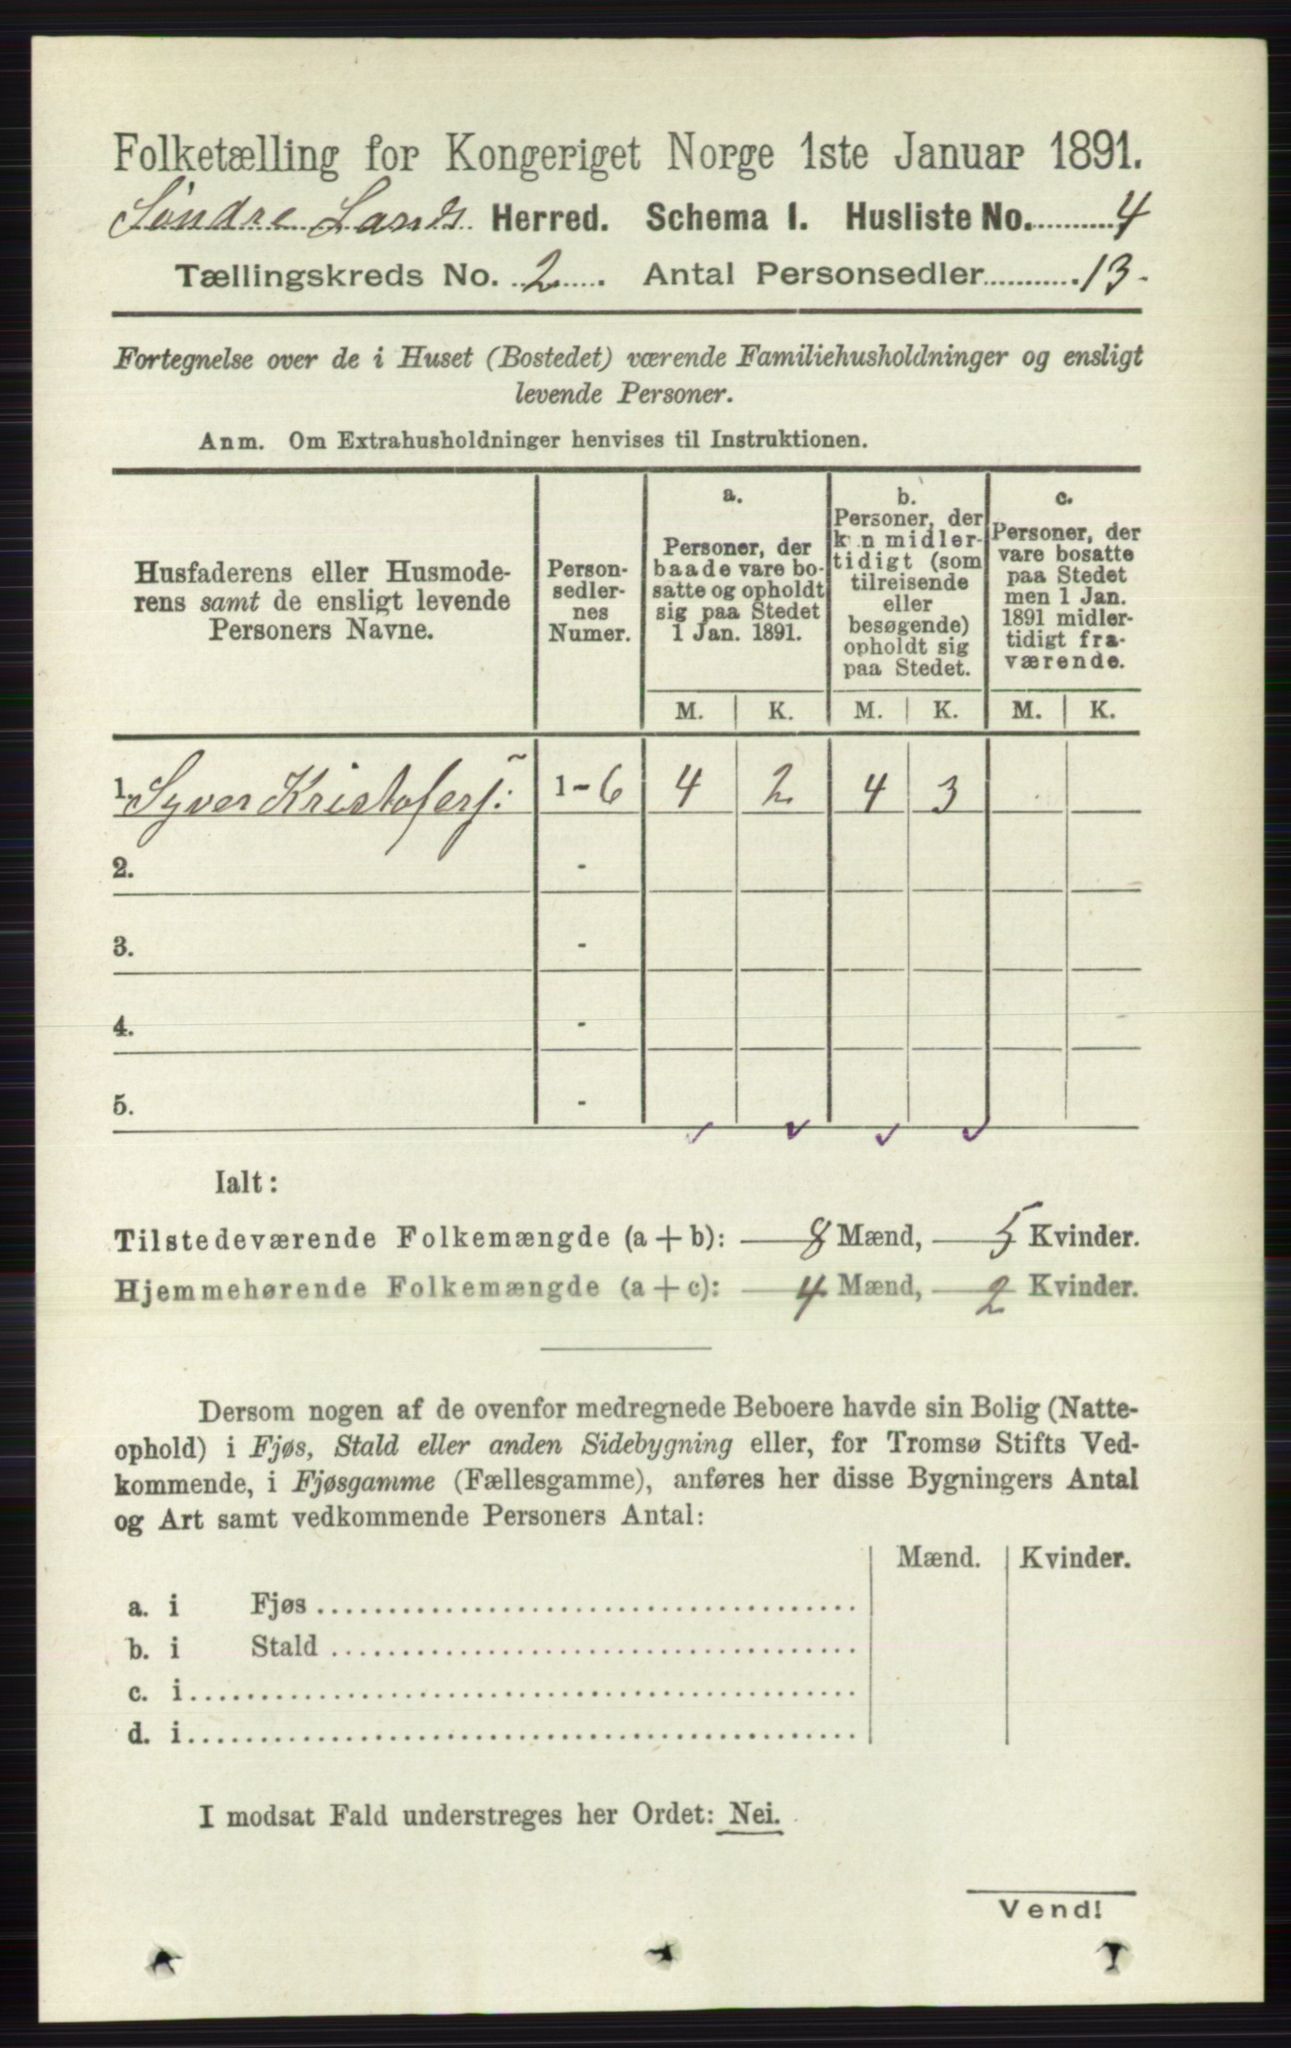 Folketælling for Kongeriget Norge 1ste Januar 1891.
Søndre Lands Herred. Schema I. Husliste No. 4
Tællingskreds No. 2. Antal Personsedler 13.
Fortegnelse over de i Huset (Bostedet) værende Familiehusholdninger og ensligt
levende Personer.
Anm. Om Extrahusholdninger henvises til Instruktionen.
Husfaderens eller Husmode-
rens samt de ensligt levende
Personers Navne.
Person-
sedler-
nes
Numer.
a.
Personer, der
baade vare bo-
satte og opholdt
sig paa Stedet
1 Jan. 1891.
b.
Personer, der
kun midler-
tidigt (som
tilreisende
eller
besøgende)
opholdt sig
paa Stedet.
c.
Personer, der
vare bosatte
paa Stedet
men 1 Jan.
1891 midler-
tidigt fra-
værende.
M. K. M. K. M. K.
1. Syver Kristofers: 1-6 4 2 4 3
2. -
3. -
4. -
5. -
Ialt:
Tilstedeværende Folkemængde (a + b): 8 Mænd, 5 Kvinder.
Hjemmehørende Folkemængde (a + c): 4 Mænd, 2 Kvinder.
Dersom nogen af de ovenfor medregnede Beboere havde sin Bolig (Natte-
ophold) i Fjøs, Stald eller anden Sidebygning eller, for Tromsø Stifts Ved-
kommende, i Fjøsgamme (Fællesgamme), anføres her disse Bygningers Antal
og Art samt vedkommende Personers Antal:
Mænd. Kvinder.
a. i Fjøs
b. i Stald
c. i
d. i
I modsat Fald understreges her Ordet: Nei.
Vend!